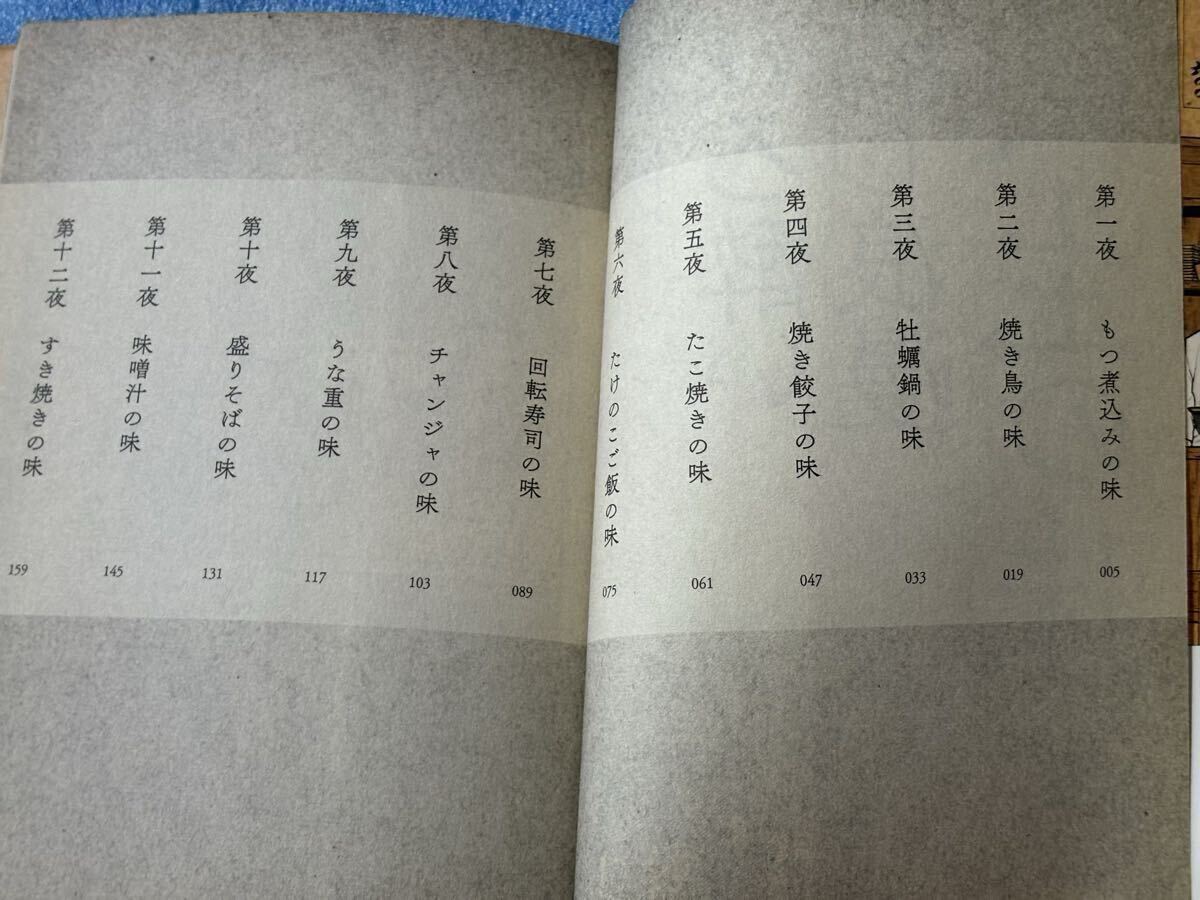 第一夜 もつ煮込みの味 005
第二夜 焼き鳥の味 019
第三夜 牡蠣鍋の味 033
第四夜 焼き餃子の味 047
第五夜 たこ焼きの味 061
第六夜 たけのこご飯の味 075
第七夜 回転寿司の味 089
第八夜 チャンジャの味 103
第九夜 うな重の味 117
第十夜 盛りそばの味 131
第十一夜 味噌汁の味 145
第十二夜 すき焼きの味 159